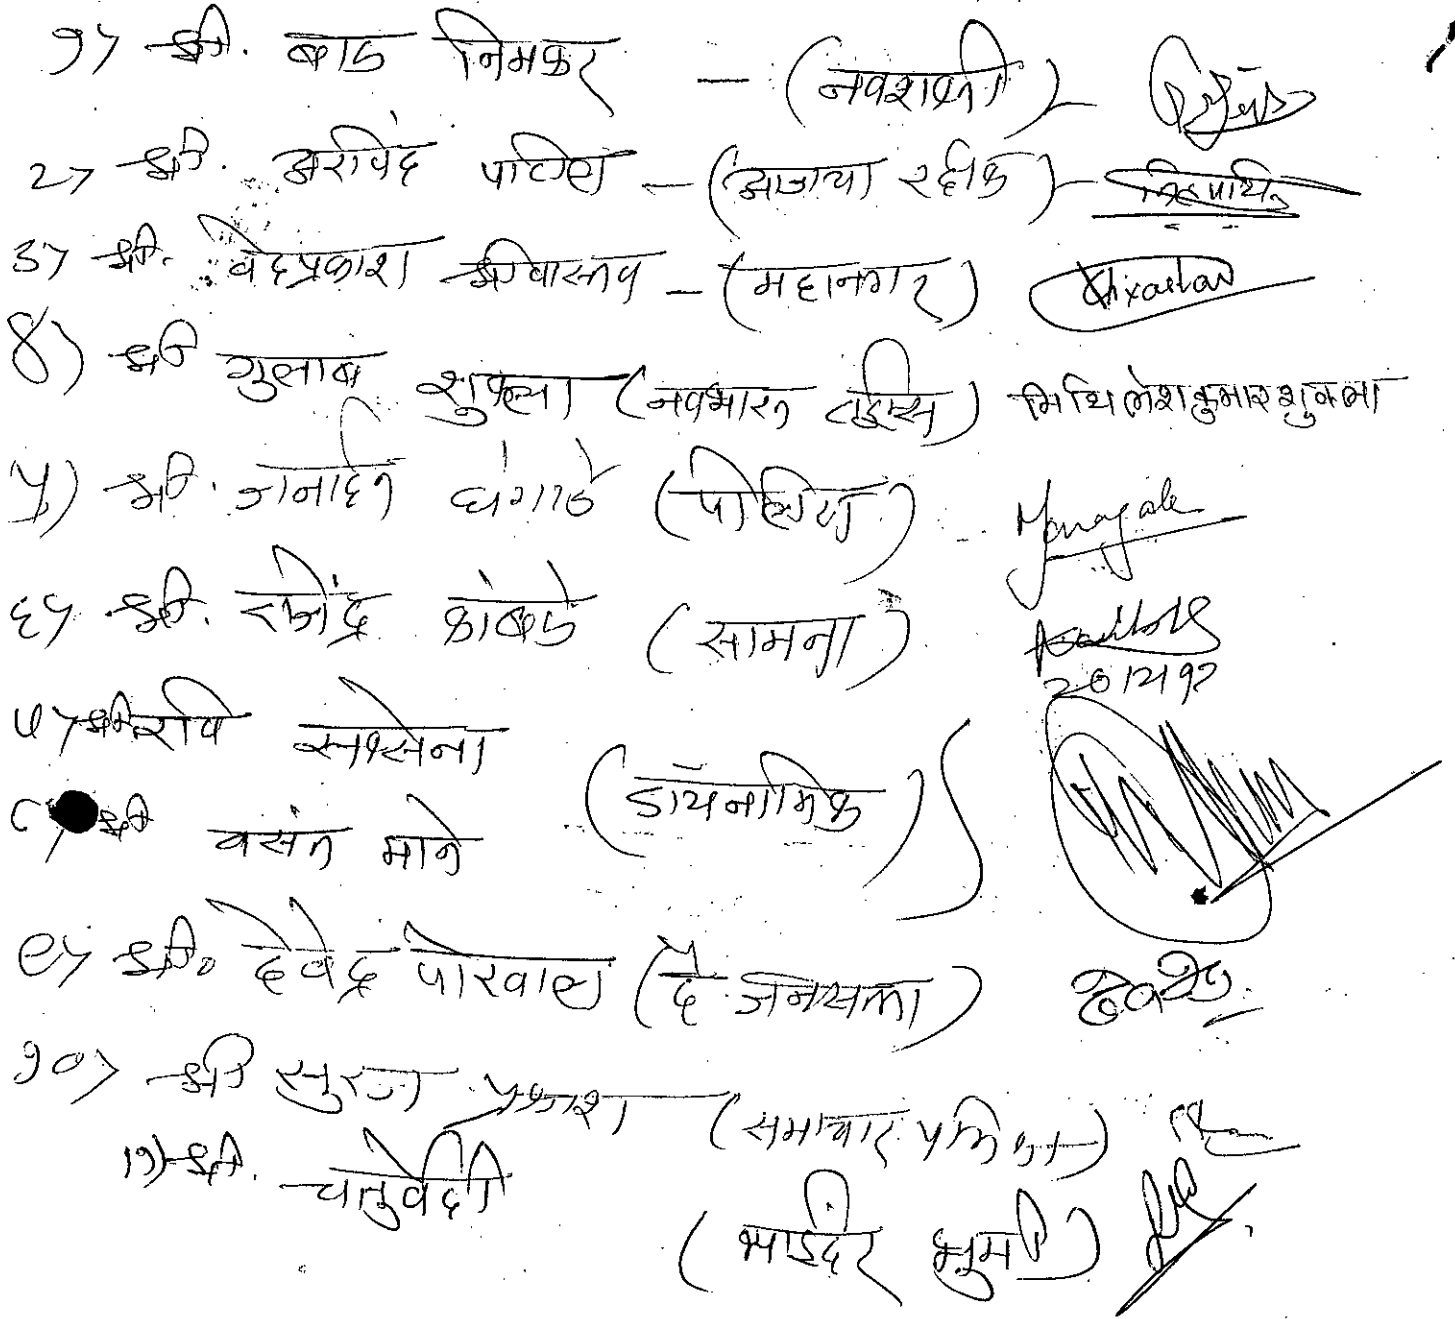 १) श्री. बाड निमकर - (नवशक्ती) -
२) श्री. अरविंद पाटील - (आजचा रक्षीक) -
३) श्री. वेदप्रकाश श्रीवास्तव - (महानगर)
४) श्री गुलाब शुक्ला (नवभारत टाईम्स) मिथिलेशकुमार शुक्ला
५) श्री. जनार्दन घंगाडे (पोलिस)
६) श्री. रविंद्र कांबळे (सामना)
७) श्री. रवि सक्सेना
८) श्री वसंत माने (डॉयनामिक)
९) श्री. देवेंद्र पोरवाल (दै. जनसत्ता)
१०) श्री सुरज प्रकाश (समाचार पत्रिका)
११) श्री. चतुर्वेदी
(भाईंदर भुमी)